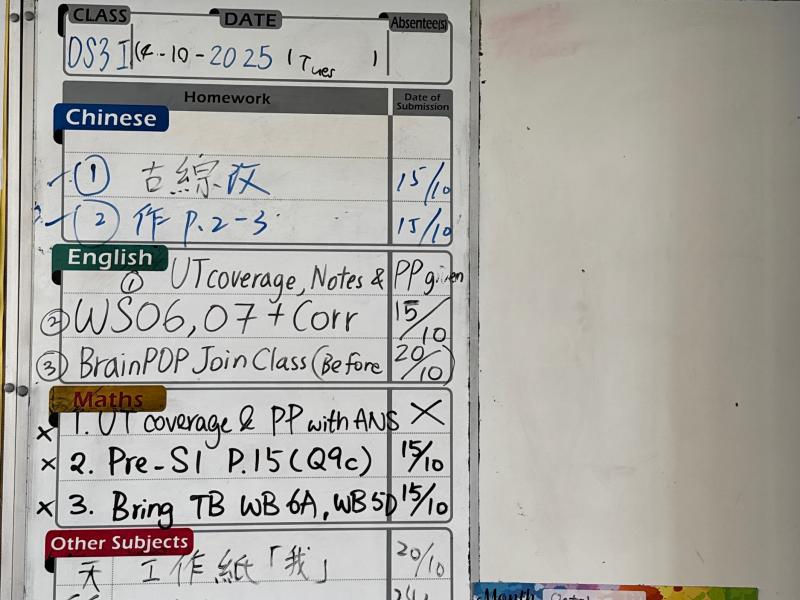 CLASS DATE Absentee(s)
DS3I 14-10-2025 (Tues)
Homework Date of Submission
Chinese
① 古綜改 15/10
② 作 P.2-3 15/10
English
① UT coverage, Notes & PP given
② WS06, 07 + Corr 15/10
③ BrainPOP Join Class (Before 20/10)
Maths
1. UT coverage & PP with ANS X
2. Pre-S1 P.15 (Q9c) 15/10
3. Bring TB WB 6A, WB 5D 15/10
Other Subjects
工作紙「我」 20/10
Month